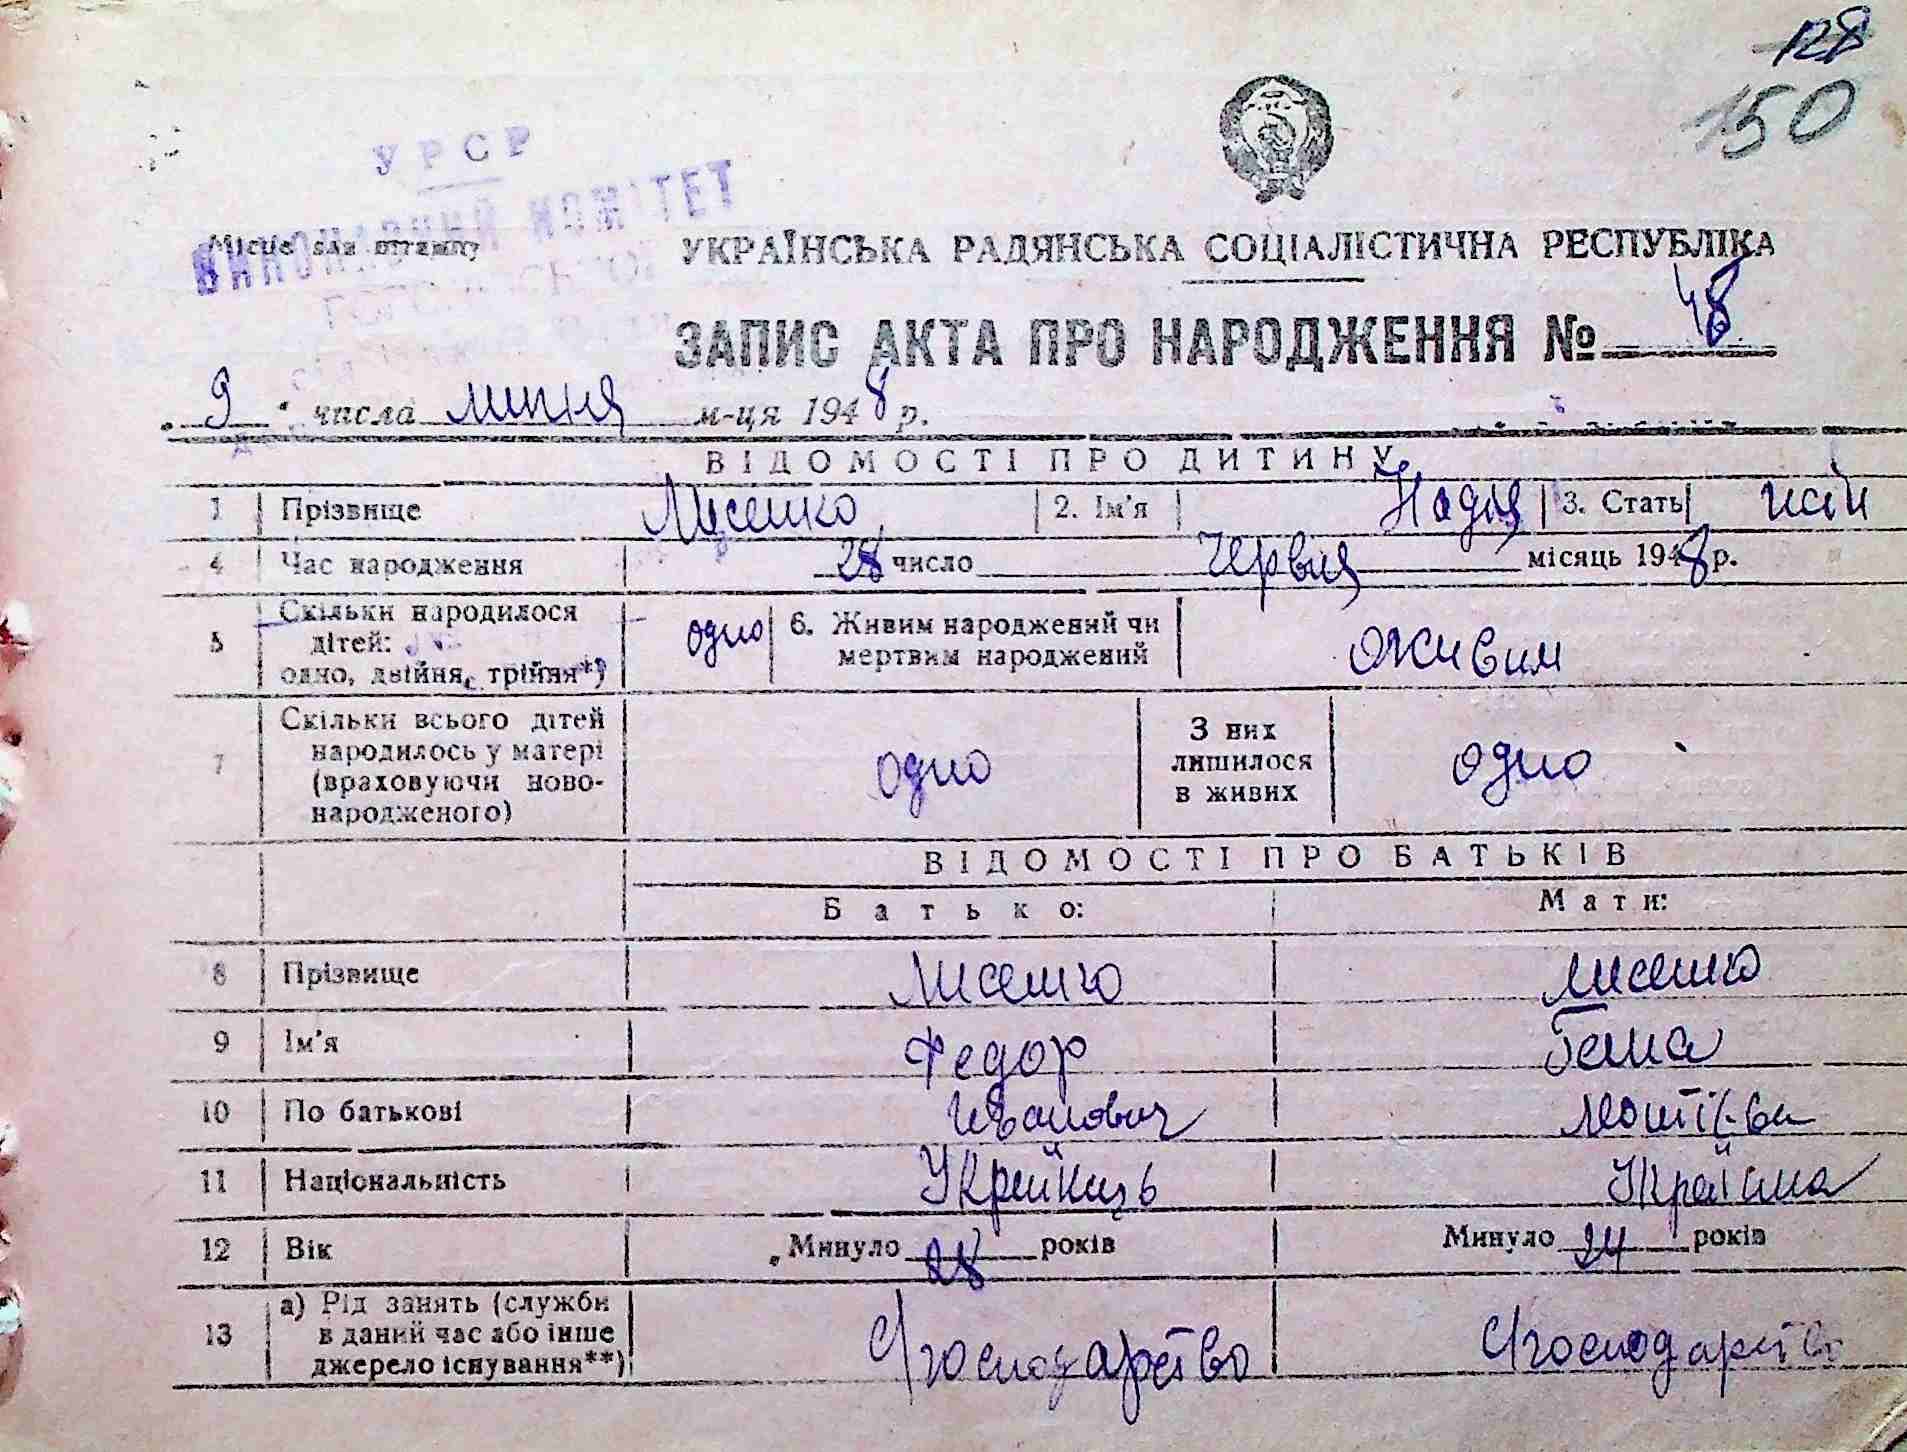 128
150
УРСР
ВИКОНАВЧИЙ КОМІТЕТ
Місце для штампу
УКРАЇНСЬКА РАДЯНСЬКА СОЦІАЛІСТИЧНА РЕСПУБЛІКА
ЗАПИС АКТА ПРО НАРОДЖЕННЯ № 48
„ 9 " числа липня м-ця 1948 р.
ВІДОМОСТІ ПРО ДИТИНУ
1 Прізвище Лисенко 2. Ім'я Надія 3. Стать
4 Час народження 28 число Червня місяць 1948 р.
5 Скільки народилося дітей: одно, двійня, трійня*) одно 6. Живим народжений чи мертвим народжений Живим
7 Скільки всього дітей народилось у матері (враховуючи новонародженого) одно З них лишилося в живих одно
ВІДОМОСТІ ПРО БАТЬКІВ
Батько: Мати:
8 Прізвище Лисенко Лисенко
9 Ім'я Федор Ганна
10 По батькові Иванович
11 Національність Украйнець Украйінка
12 Вік Минуло 28 років Минуло 24 років
13 а) Рід занять (служби в даний час або інше джерело існування**) С/господарство С/господарство